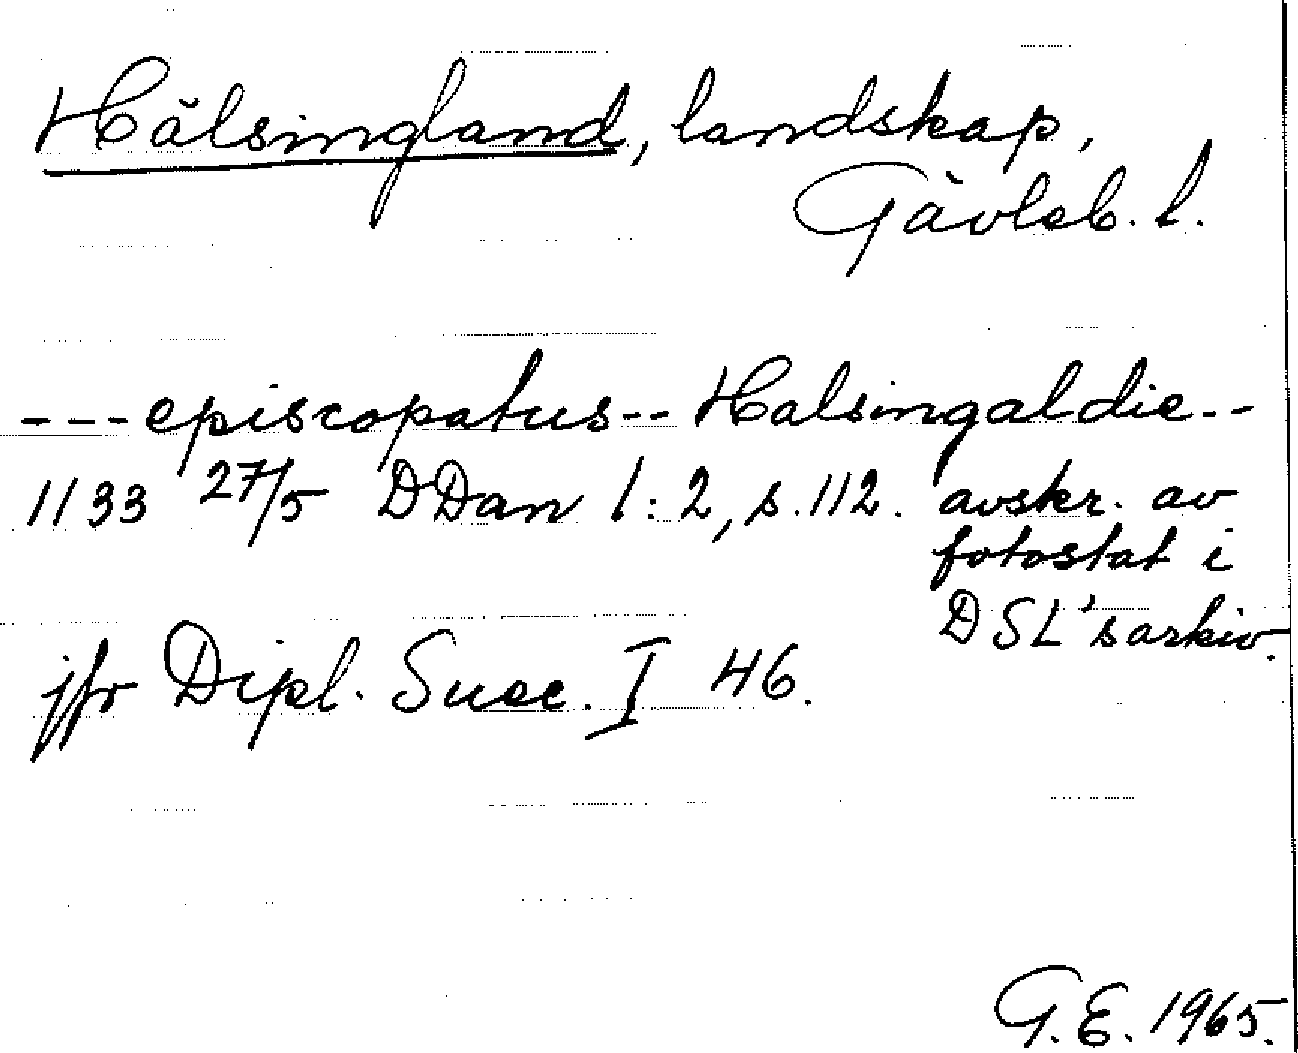 Hälsingland, landskap,
Gävleb. l.
---episcopatus-- Halsingaldie--
1133 27/5 DDan 1:2, s.112. avskr. av
fotostat i
DSL's arkiv.
jfr Dipl. Suec. I 46.
G.E. 1965.